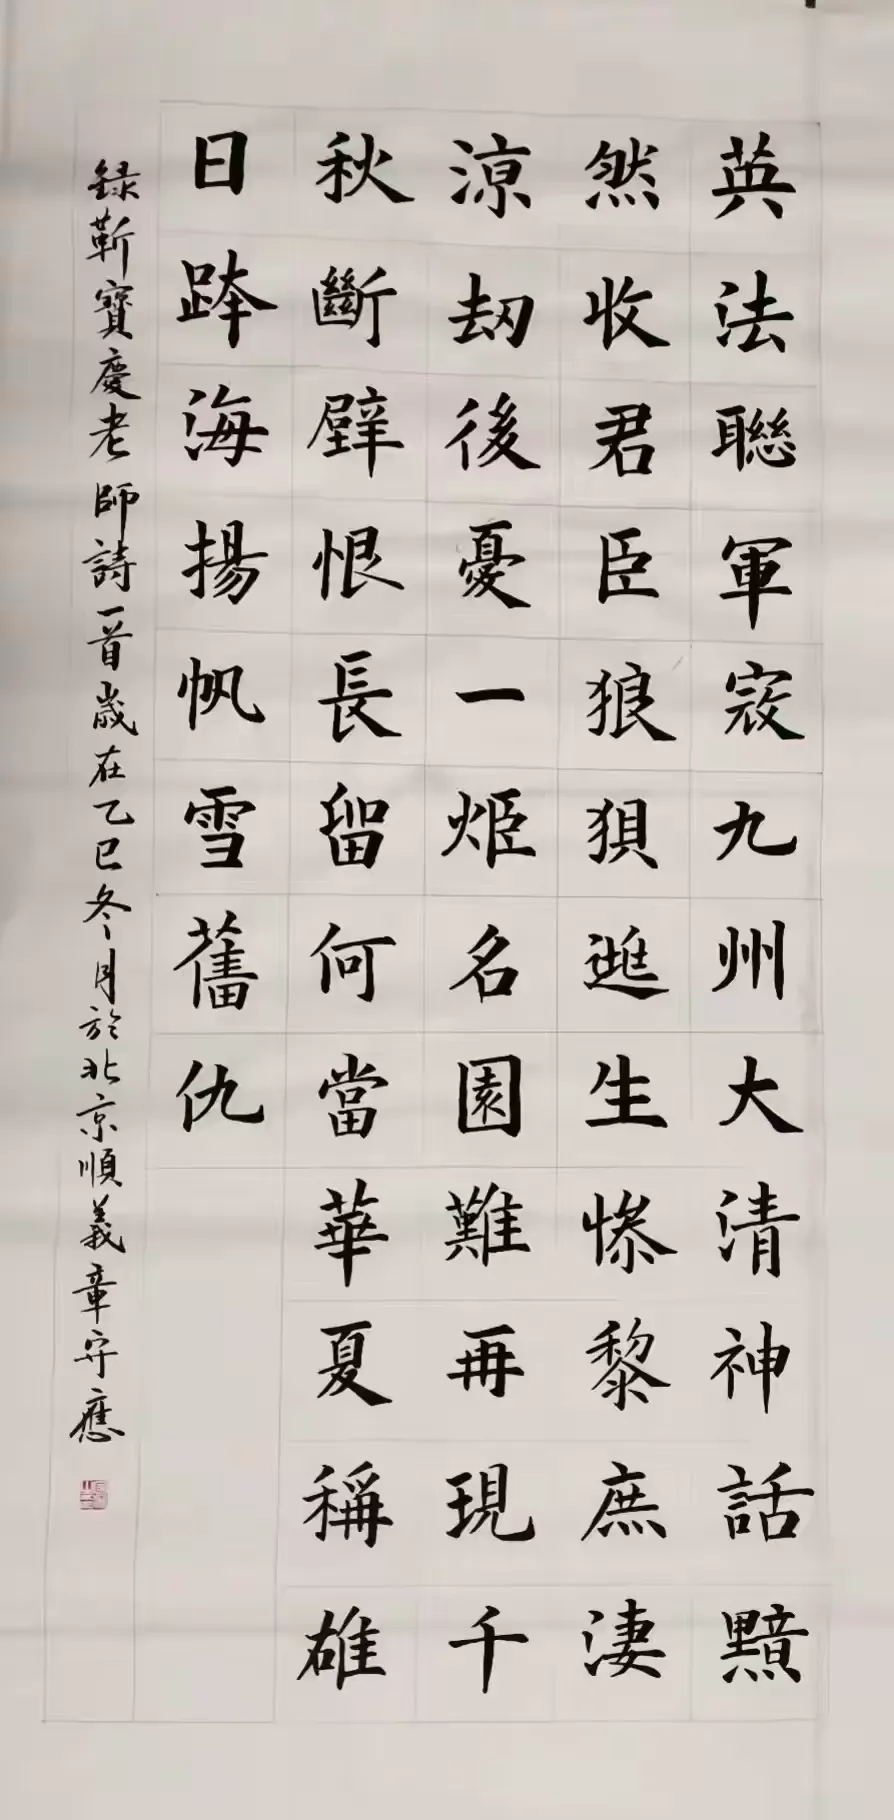 英法聯軍寇九州大清神話黯
然收君臣狼狽逃生慘黎庶淒
涼劫後憂一炬名園難再現千
秋斷壁恨長留何當華夏稱雄
日跨海揚帆雪舊仇
錄靳寶慶老師詩一首歲在乙巳冬月於北京順義章守應